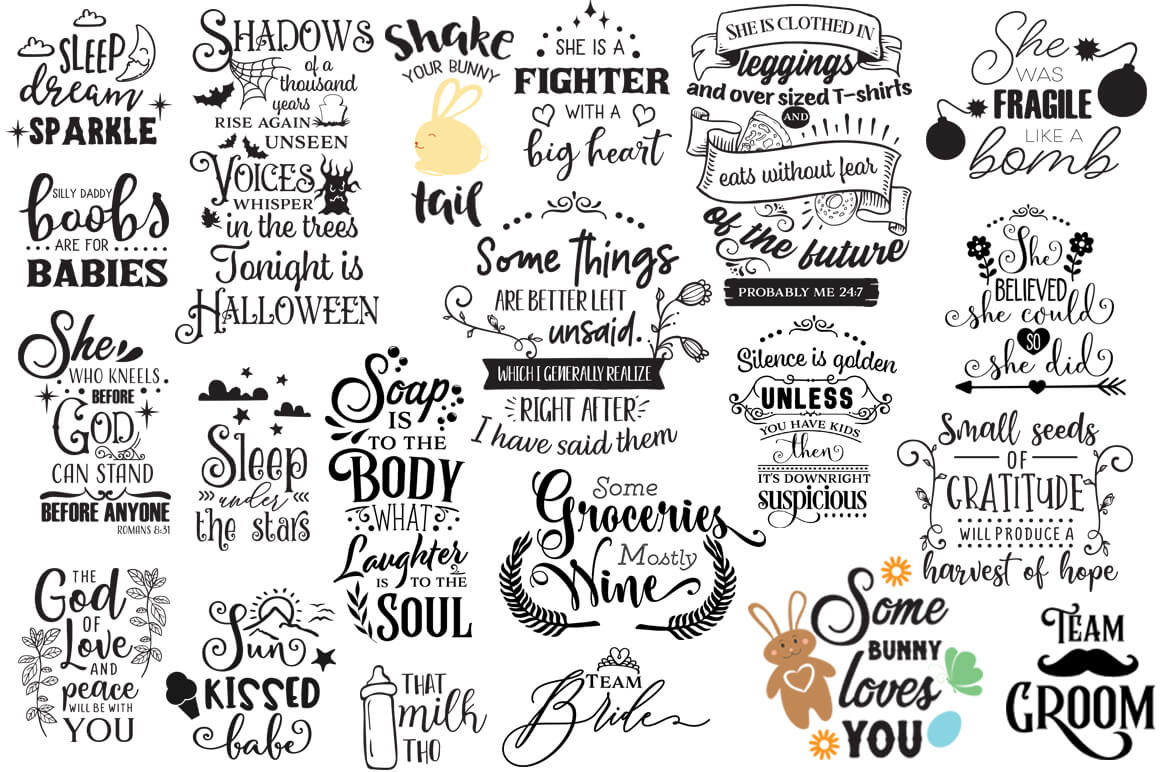 SLEEP
dream
SPARKLE
SHADOWS
of a
thousand
years
RISE AGAIN
UNSEEN
VOICES
WHISPER
in the trees
Tonight is
HALLOWEEN
Shake
YOUR BUNNY
tail
SHE IS A
FIGHTER
WITH A
big heart
SHE IS CLOTHED IN
leggings
and over sized T-shirts
AND
eats without fear
of the future
PROBABLY ME 24:7
She
WAS
FRAGILE
LIKE A
bomb
SILLY DADDY
boobs
ARE FOR
BABIES
Some Things
ARE BETTER LEFT
unsaid.
WHICH I GENERALLY REALIZE
RIGHT AFTER
I have said them
She
BELIEVED
she could
SO
she did
She
WHO KNEELS
BEFORE
GOD
CAN STAND
BEFORE ANYONE
ROMANS 8:31
Sleep
under
the stars
Soap
IS
TO THE
BODY
WHAT
Laughter
IS TO THE
SOUL
Silence is golden
UNLESS
YOU HAVE KIDS
then
IT'S DOWNRIGHT
suspicious
Small seeds
OF
GRATITUDE
WILL PRODUCE A
harvest of hope
Some
Groceries
Mostly
Wine
THE
God
OF
Love
AND
peace
WILL BE WITH
YOU
Sun
KISSED
babe
THAT
milk
THO
TEAM
Bride
Some
BUNNY
loves
YOU
TEAM
GROOM